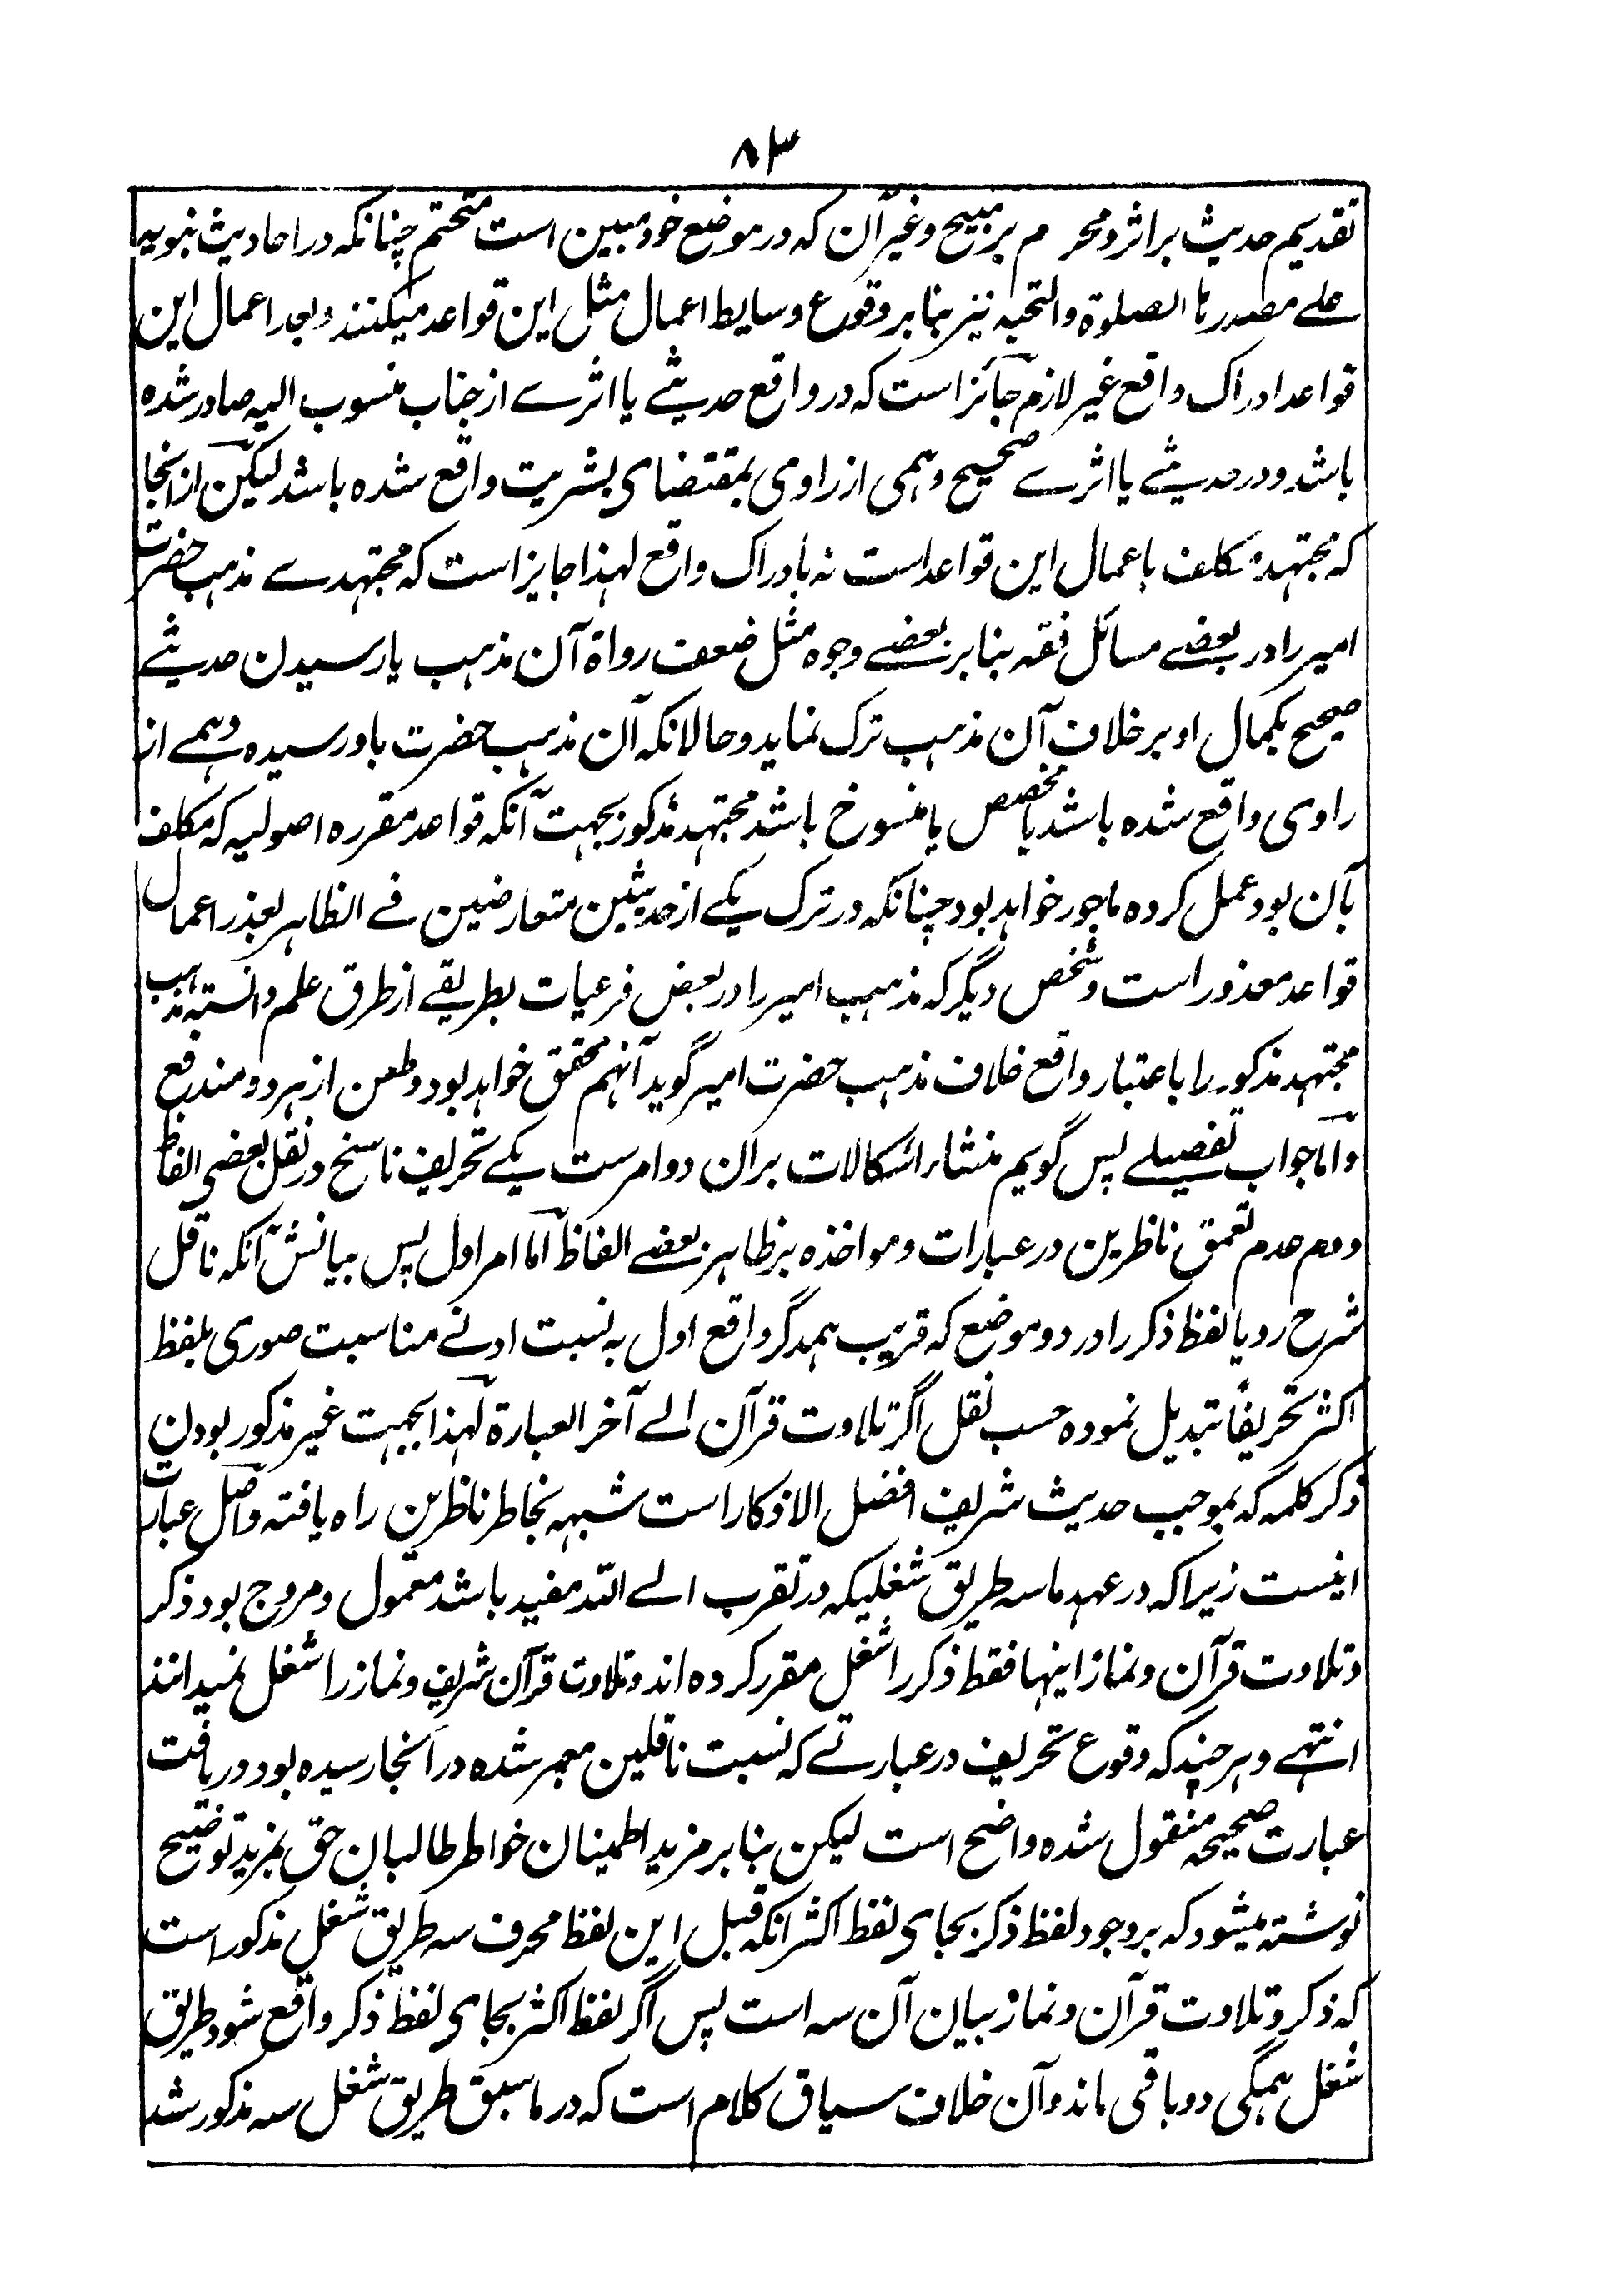 ۸۳
تقدیم حدیث بر اثر و محرم بر مبیح و غیر آن که در موضع خود مبین است متحتم چنانکه در احادیث نبویہ
علے مصدرہا الصلوۃ والتحیہ نیز بنا بر وقوع وسایط اعمال مثل این قواعد میکنند و بعد اعمال این
قواعد ادراک واقع غیر لازم جائز است که در واقع حدیثے یا اثرے از جناب منسوب الیہ صادر شده
باشد و در حدیثے یا اثرے صحیح وہمی از راوی بمقتضای بشریت واقع شده باشد لیکن از انجا
که مجتہد مکلف باعمال این قواعد است نہ بادراک واقع لہذا جایز است که مجتہدے مذہب حضرت
امیر را در بعضے مسائل فقہ بنا بر بعضے وجوہ مثل ضعف رواۃ آن مذہب یا رسیدن حدیثے
صحیح بکمال او بر خلاف آن مذہب ترک نماید و حالانکہ آن مذہب حضرت باو رسیدہ وہمے از
راوی واقع شده باشد یا مخصص یا منسوخ باشد مجتہد مذکور بجہت آنکہ قواعد مقررہ اصولیہ که مکلف
بآن بود عمل کردہ ماجور خواہد بود چنانکہ در ترک یکے از حدیثین متعارضین فے الظاہر بعذر اعمال
قواعد معذور است و شخص دیگر که مذہب امیر را در بعض فرعیات بطریقے از طرق علم دانستہ مذہب
مجتہد مذکور را باعتبار واقع خلاف مذہب حضرت امیر گوید آنہم محقق خواہد بود و طعن از ہر دو مندفع
و اما جواب تفصیلے پس گویم منشاء اشکالات بران دو امرست یکے تحریف ناسخ در نقل بعضی الفاظ
دوم عدم تعمق ناظرین در عبارات و مواخذہ بر ظاہر بعضے الفاظ اما امر اول پس بیانش آنکہ ناقل
شرح رویا لفظ ذکر را در دو موضع که قریب ہمدگر واقع اول بہ نسبت ادنے مناسبت صوری بلفظ
اکثر تحریفاً تبدیل نمودہ حسب نقل اگر تلاوت قرآن الے آخر العبارۃ لہذا بجہت غیر مذکور بودن
ذکر کلمہ که بموجب حدیث شریف افضل الاذکار است شبہہ بخاطر ناظرین راہ یافتہ و اصل عبارت
اینست زیرا که در عہد ما سہ طریق شغلیکہ در تقرب الے اللہ مفید باشد معمول و مروج بود ذکر
و تلاوت قرآن و نماز اینہا فقط ذکر را شغل مقرر کردہ اند و تلاوت قرآن شریف و نماز را شغل نمیدانند
انتہے و ہر چند که وقوع تحریف در عبارتے که نسبت ناقلین معبر شدہ در آنجا رسیدہ بود و دریافت
عبارت صحیحہ منقول شدہ واضح است لیکن بنا بر مزید اطمینان خواطر طالبان حق بمزید توضیح
نوشتہ میشود که بر وجود لفظ ذکر بجای لفظ اکثر انکہ قبل این لفظ محرف سہ طریق شغل مذکور است
که ذکر و تلاوت قرآن و نماز بیان آن سہ است پس اگر لفظ اکثر بجای لفظ ذکر واقع شود طریق
شغل ہمگی دو باقی ماند و آن خلاف سیاق کلام است که در ما سبق طریق شغل سہ مذکور شد